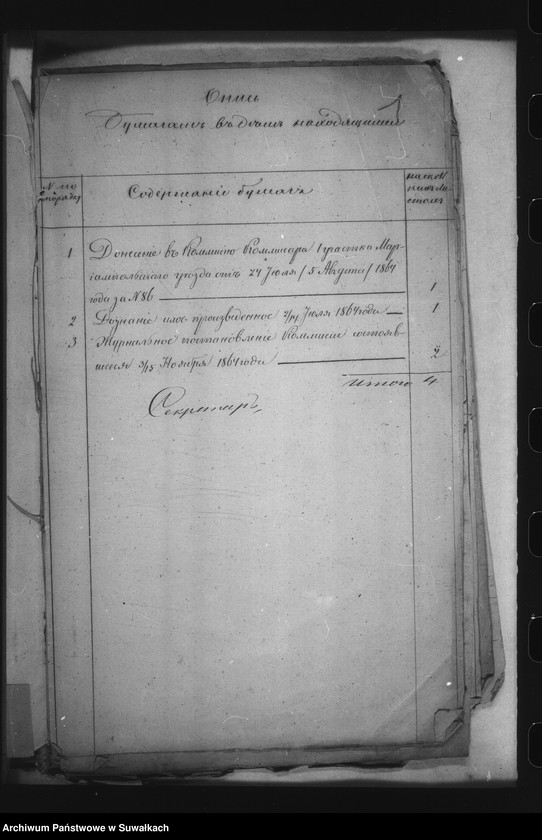 Опись
бумагамъ въ дѣлѣ находящимся
№ по порядку
Содержаніе бумагъ
на сколькихъ листахъ
1 Донесеніе въ Коммисію Коммисара 1 участка Мар-
іампольскаго уѣзда отъ 24 Іюля / 5 Августа / 1864
года за № 86 1
2 Дознаніе имъ произведенное 2/14 Іюля 1864 года 1
3 Журнальное постановленіе Коммисіи состояв-
шееся 3/15 Ноября 1864 года 2
Итого 4
Секретарь,
Archiwum Państwowe w Suwałkach